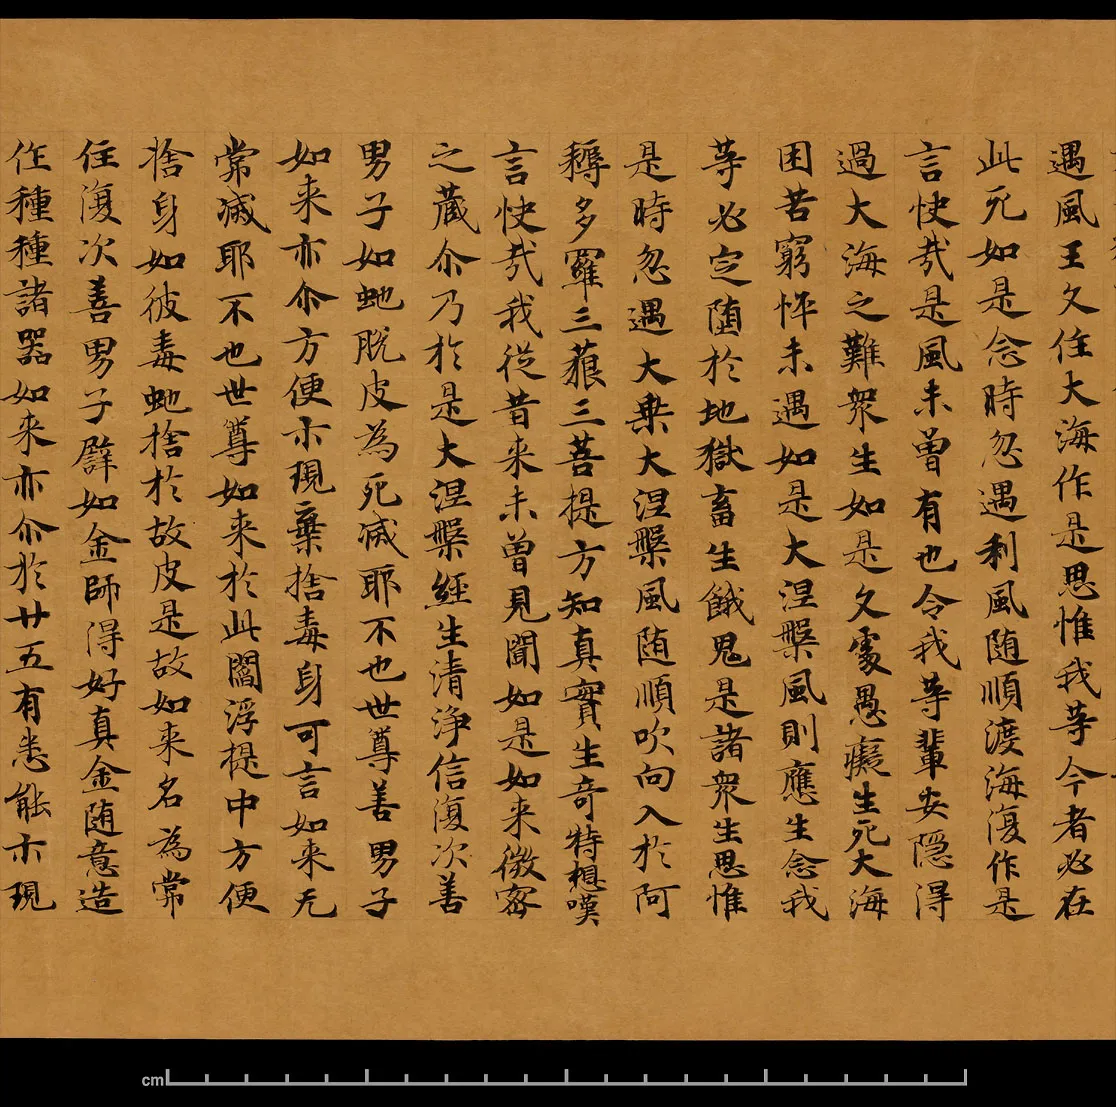 遇風王久住大海作是思惟我等今者必在
此死如是念時忽遇利風随順渡海復作是
言快㢤是風未曾有也令我等輩安隠得
過大海之難衆生如是久處愚癡生死大海
困苦窮悴未遇如是大涅槃風則應生念我
等必定堕於地獄畜生餓鬼是諸衆生思惟
是時忽遇大乗大涅槃風随順吹向入於阿
耨多羅三藐三菩提方知真實生奇特想嘆
言快㢤我従昔来未曾見聞如是如来微密
之蔵尒乃於是大涅槃經生清浄信復次善
男子如虵脱皮為死滅耶不也世尊善男子
如来亦尒方便示現棄捨毒身可言如来无
常滅耶不也世尊如来於此閻浮提中方便
捨身如彼毒虵捨於故皮是故如来名為常
住復次善男子譬如金師得好真金随意造
作種種諸器如来亦尒於廿五有悉能示現
cm